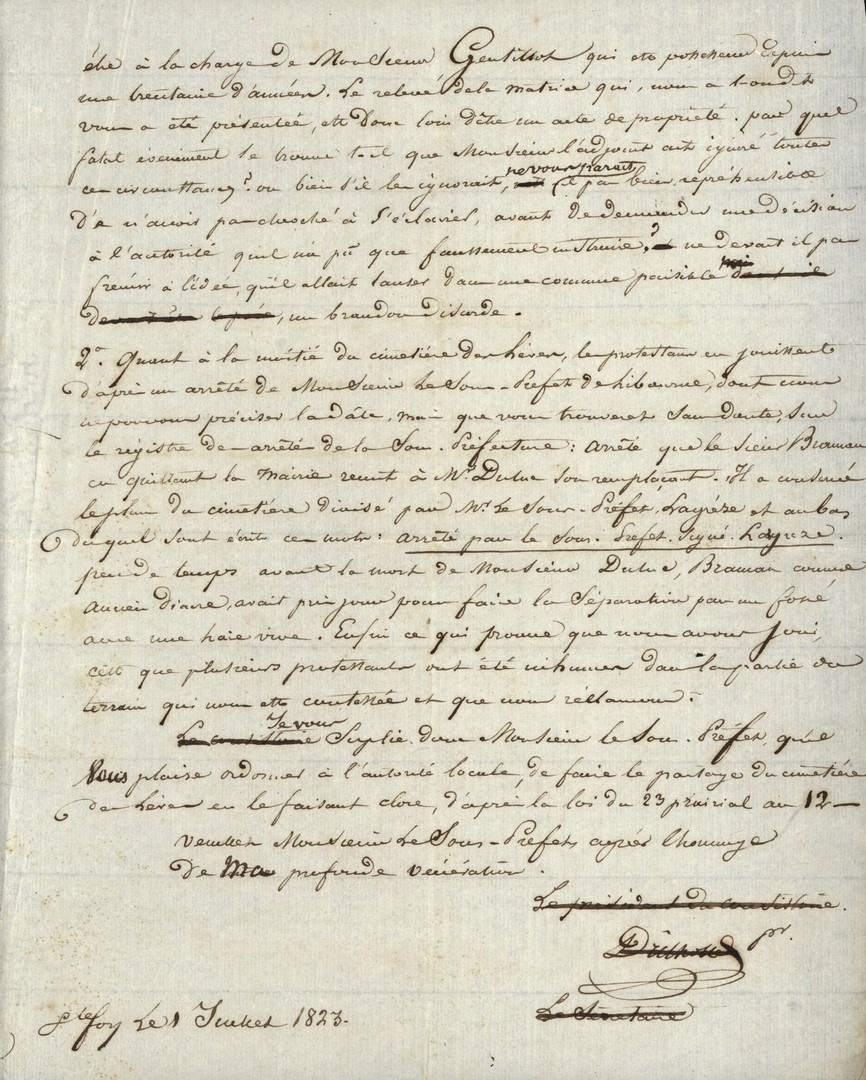 été à la charge de Monsieur Gentillot qui est possesseur depuis
une trentaine d'années. Le relevé de la matrice qui, nous a-t-on dit
vous a été présentée, est donc loin d'être un acte de propriété. par quel
fatal évenement se trouve t-il que Monsieur l'adjoint ait ignoré toutes
ces circonstances? ou bien s'il les ignorait, ne vous parait il pas bien repréhensible
de n'avoir pas cherché à s'éclairer, avant de demander une décision
à l'autorité qu'il n'a pû que faussement instruire? ne devait il pas
frémir à l'idée, qu'il allait lancer dans une commune paisible
de, un brandon discorde.
2° Quant à la moitié du cimetière des Lèves, les protestans en jouissent
d'après un arrêté de Monsieur Le Sous-Préfet de Libourne, dont nous
ne pouvons préciser la dâte, mais que vous trouverez sans doute, sur
le régistre des arrêtés de la Sous-Préfecture: arrêté que le sieur Braman
en quittant la Mairie remit à Mr. Duluc son remplaçant. Il a conservé
le plan du cimetière divisé par Mr. Le Sous-Préfet Lagrèze et au bas
du quel sont écrit ces mots: arrêté par le Sous-Prefet. Signé. Lagreze.
peu de temps avant la mort de Monsieur Duluc, Braman comme
ancien diacre, avait pris jour pour faire la séparation par un fossé
avec une haie vive. Enfin ce qui prouve que nous avons joui,
c'est que plusieurs protestants ont été inhumés dans la partie du
terrain qui nous est contestée et que nous réclamons.
Je vous
Le consistoire Suplie donc Monsieur le Sous-Préfet, qu'il
Vous plaise ordonner à l'autorité locale, de faire le partage du cimetière
des Lèves en le faisant clore, d'après la loi du 23 prairial an 12
veuillez Monsieur Le Sous-Préfet agréer l'hommage
De Ma profonde vénération.
Le président du consistoire.
pr.
Le Secretaire
Ste foy Le 1 Juillet 1823.